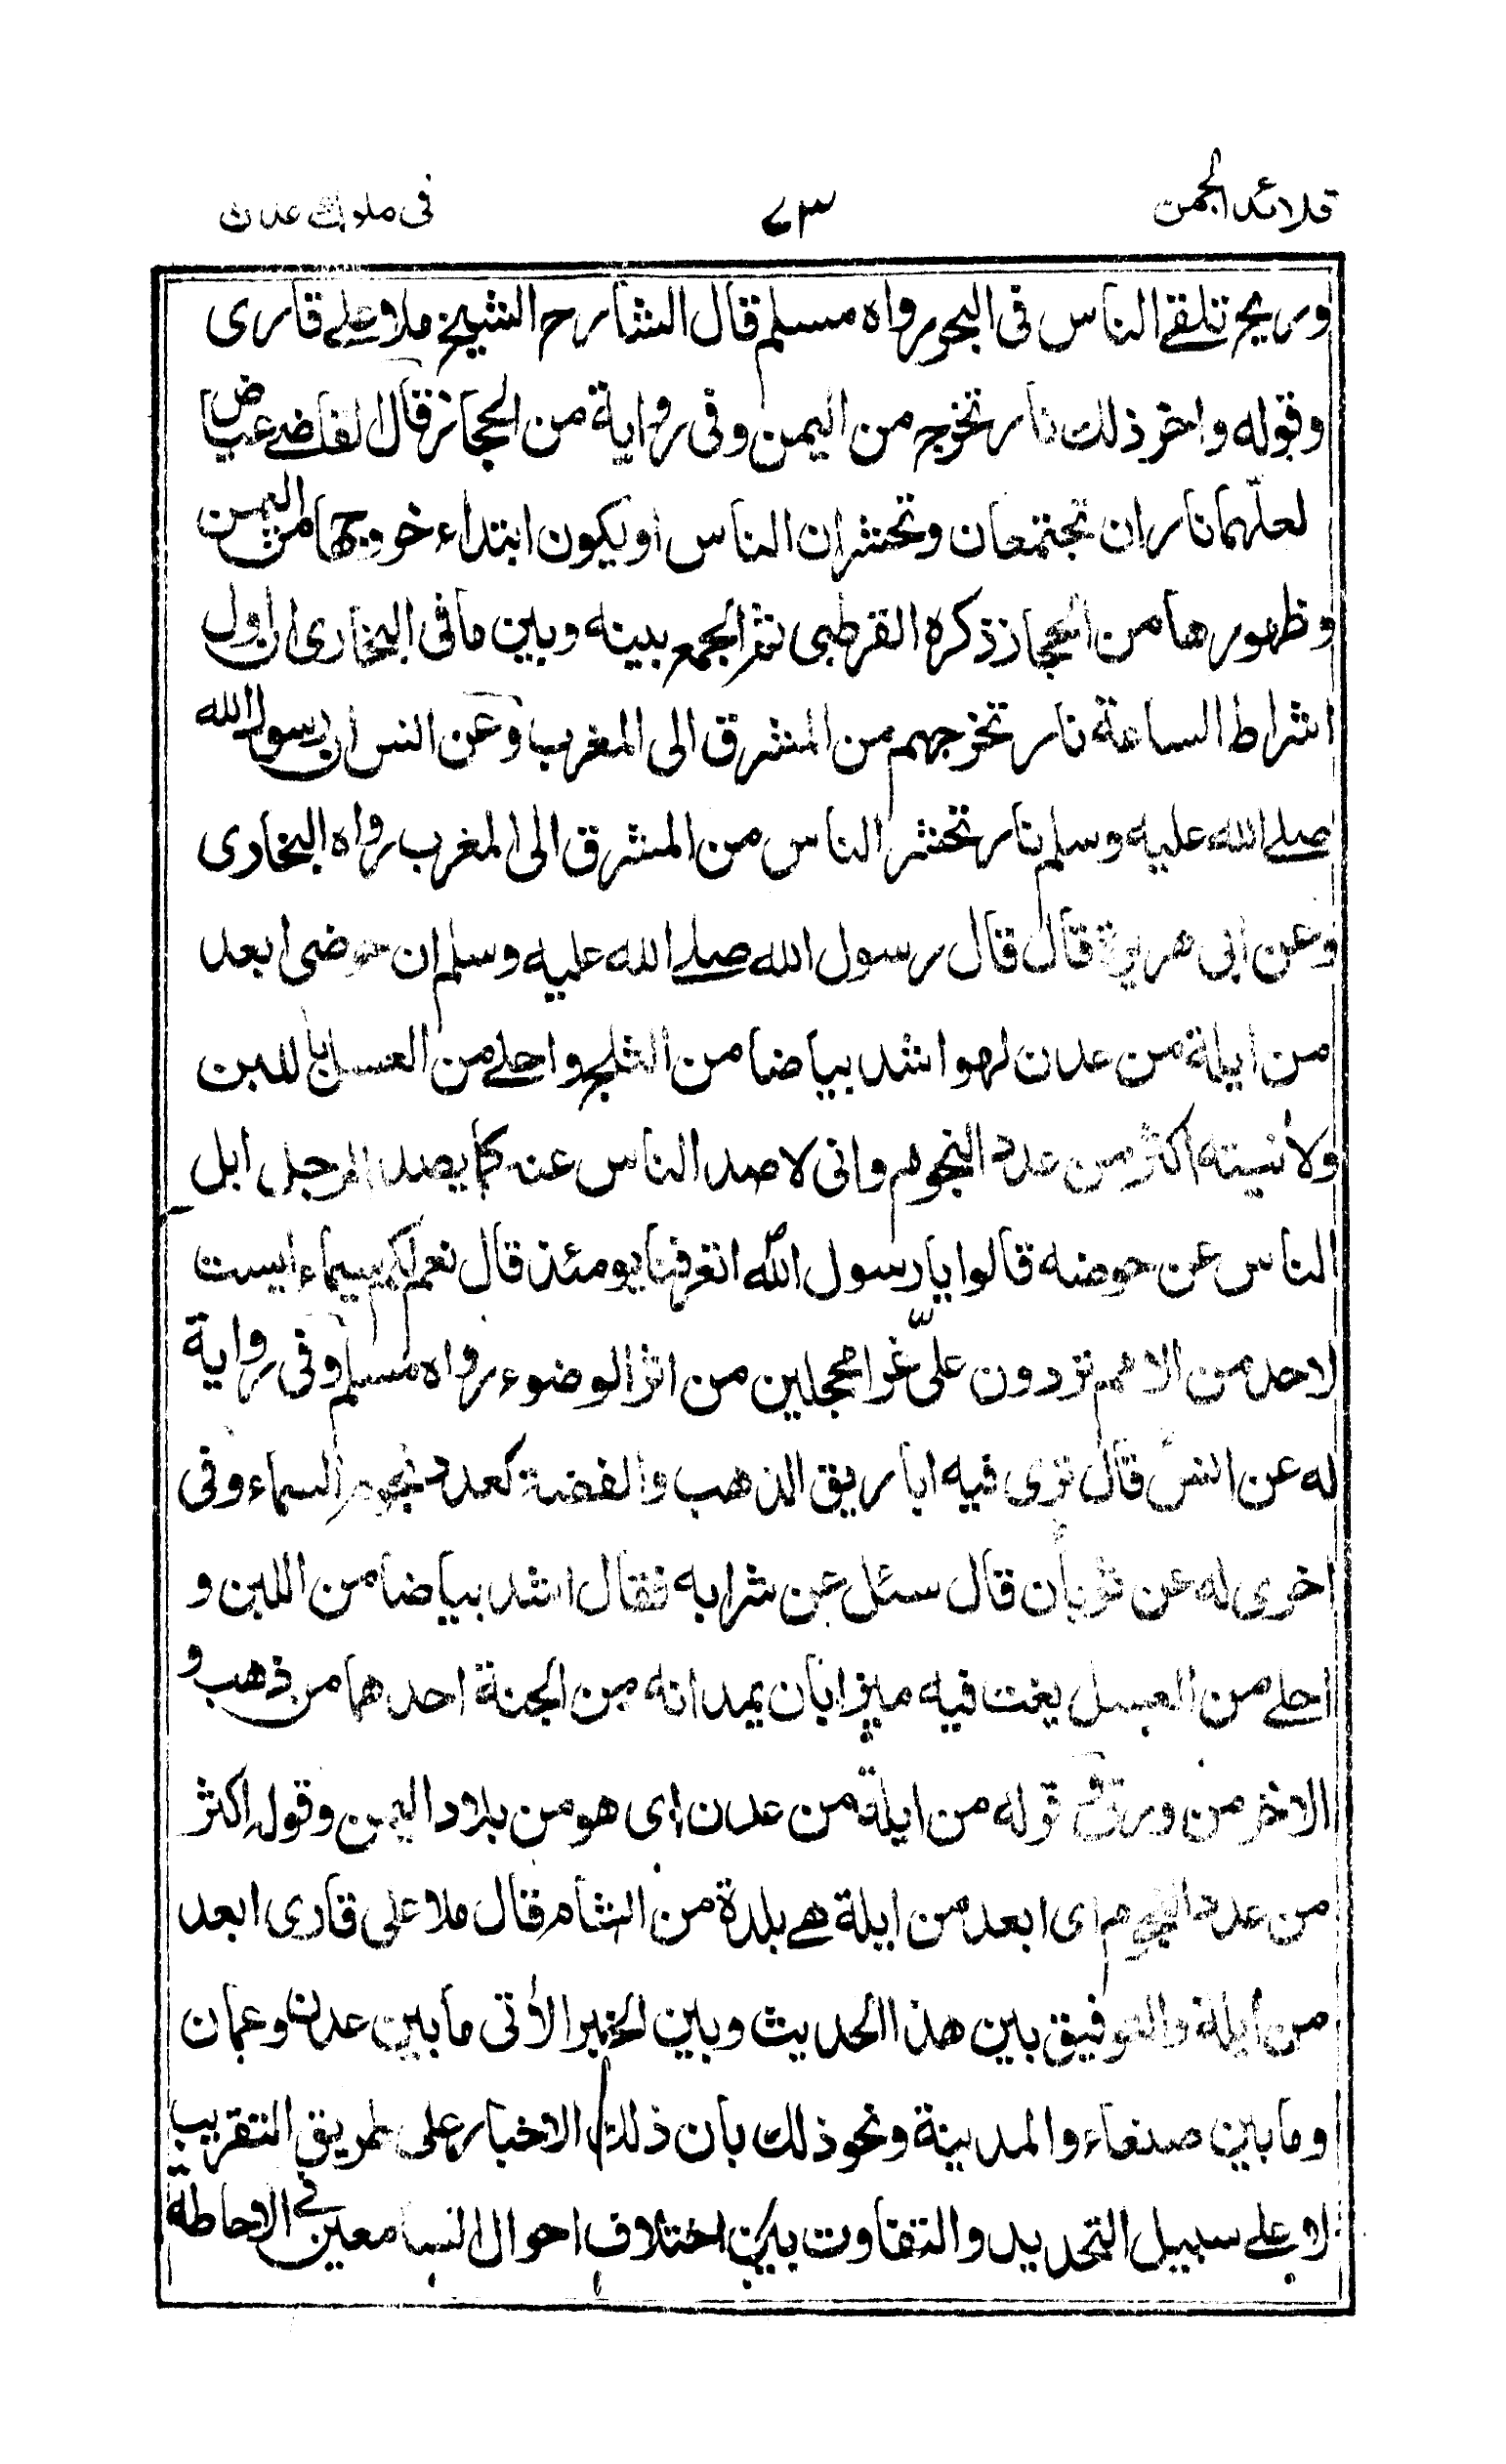 قلائد الجمن
٧٣
فى ملوك عدن
وريح تلقے الناس فى البحور رواه مسلم قال الشارح الشيخ ملا علے قارى
وقوله واخر ذلك نار تخرج من اليمن وفى رواية من الحجاز قال القاضے عياض
لعلّهما ناران تجتمعان وتحشران الناس او يكون ابتداء خروجها من اليمن
وظهورها من الحجاز ذكره القرطبى ثم الجمع بينه وبين ما فى البخارى ان اول
اشراط الساعة نار تخرجهم من المشرق الى المغرب وعن انس ان رسول الله
صلے الله عليه وسلم نار تحشر الناس من المشرق الى المغرب رواه البخارى
وعن ابى هريرة قال قال رسول الله صلے الله عليه وسلم ان حوضى ابعد
من ايلة من عدن لهو اشد بياضا من الثلج واحلے من العسل باللبن
ولآنيته اكثر من عدد النجوم وانى لاصد الناس عنه كما يصد الرجل ابل
الناس عن حوضه قالوا يا رسول الله اتعرفنا يومئذ قال نعم لكم سيماء ليست
لاحد من الامم تردون علىّ غرّا محجلين من اثر الوضوء رواه مسلم وفى رواية
له عن انس قال ترى فيه اباريق الذهب والفضة كعدد نجوم السماء وفى
اخرى له عن ثوبان قال سئل عن شرابه فقال اشد بياضا من اللبن و
احلے من العسل يغت فيه ميزابان يمدانه من الجنة احدهما من ذهب و
الاخر من ورق قوله من ايلة من عدن اى هو من بلاد اليمن وقوله اكثر
من عدد النجوم اى ابعد من ايلة هے بلدة من الشام قال ملا على قارى ابعد
من ايلة والتوفيق بين هذا الحديث وبين الخبر الآتى ما بين عدن وعمان
وما بين صنعاء والمدينة ونحو ذلك بان ذلك الاخبار على طريق التقريب
لا علے سبيل التحديد والتفاوت بين اختلاف احوال السامعين فے الاحاطة